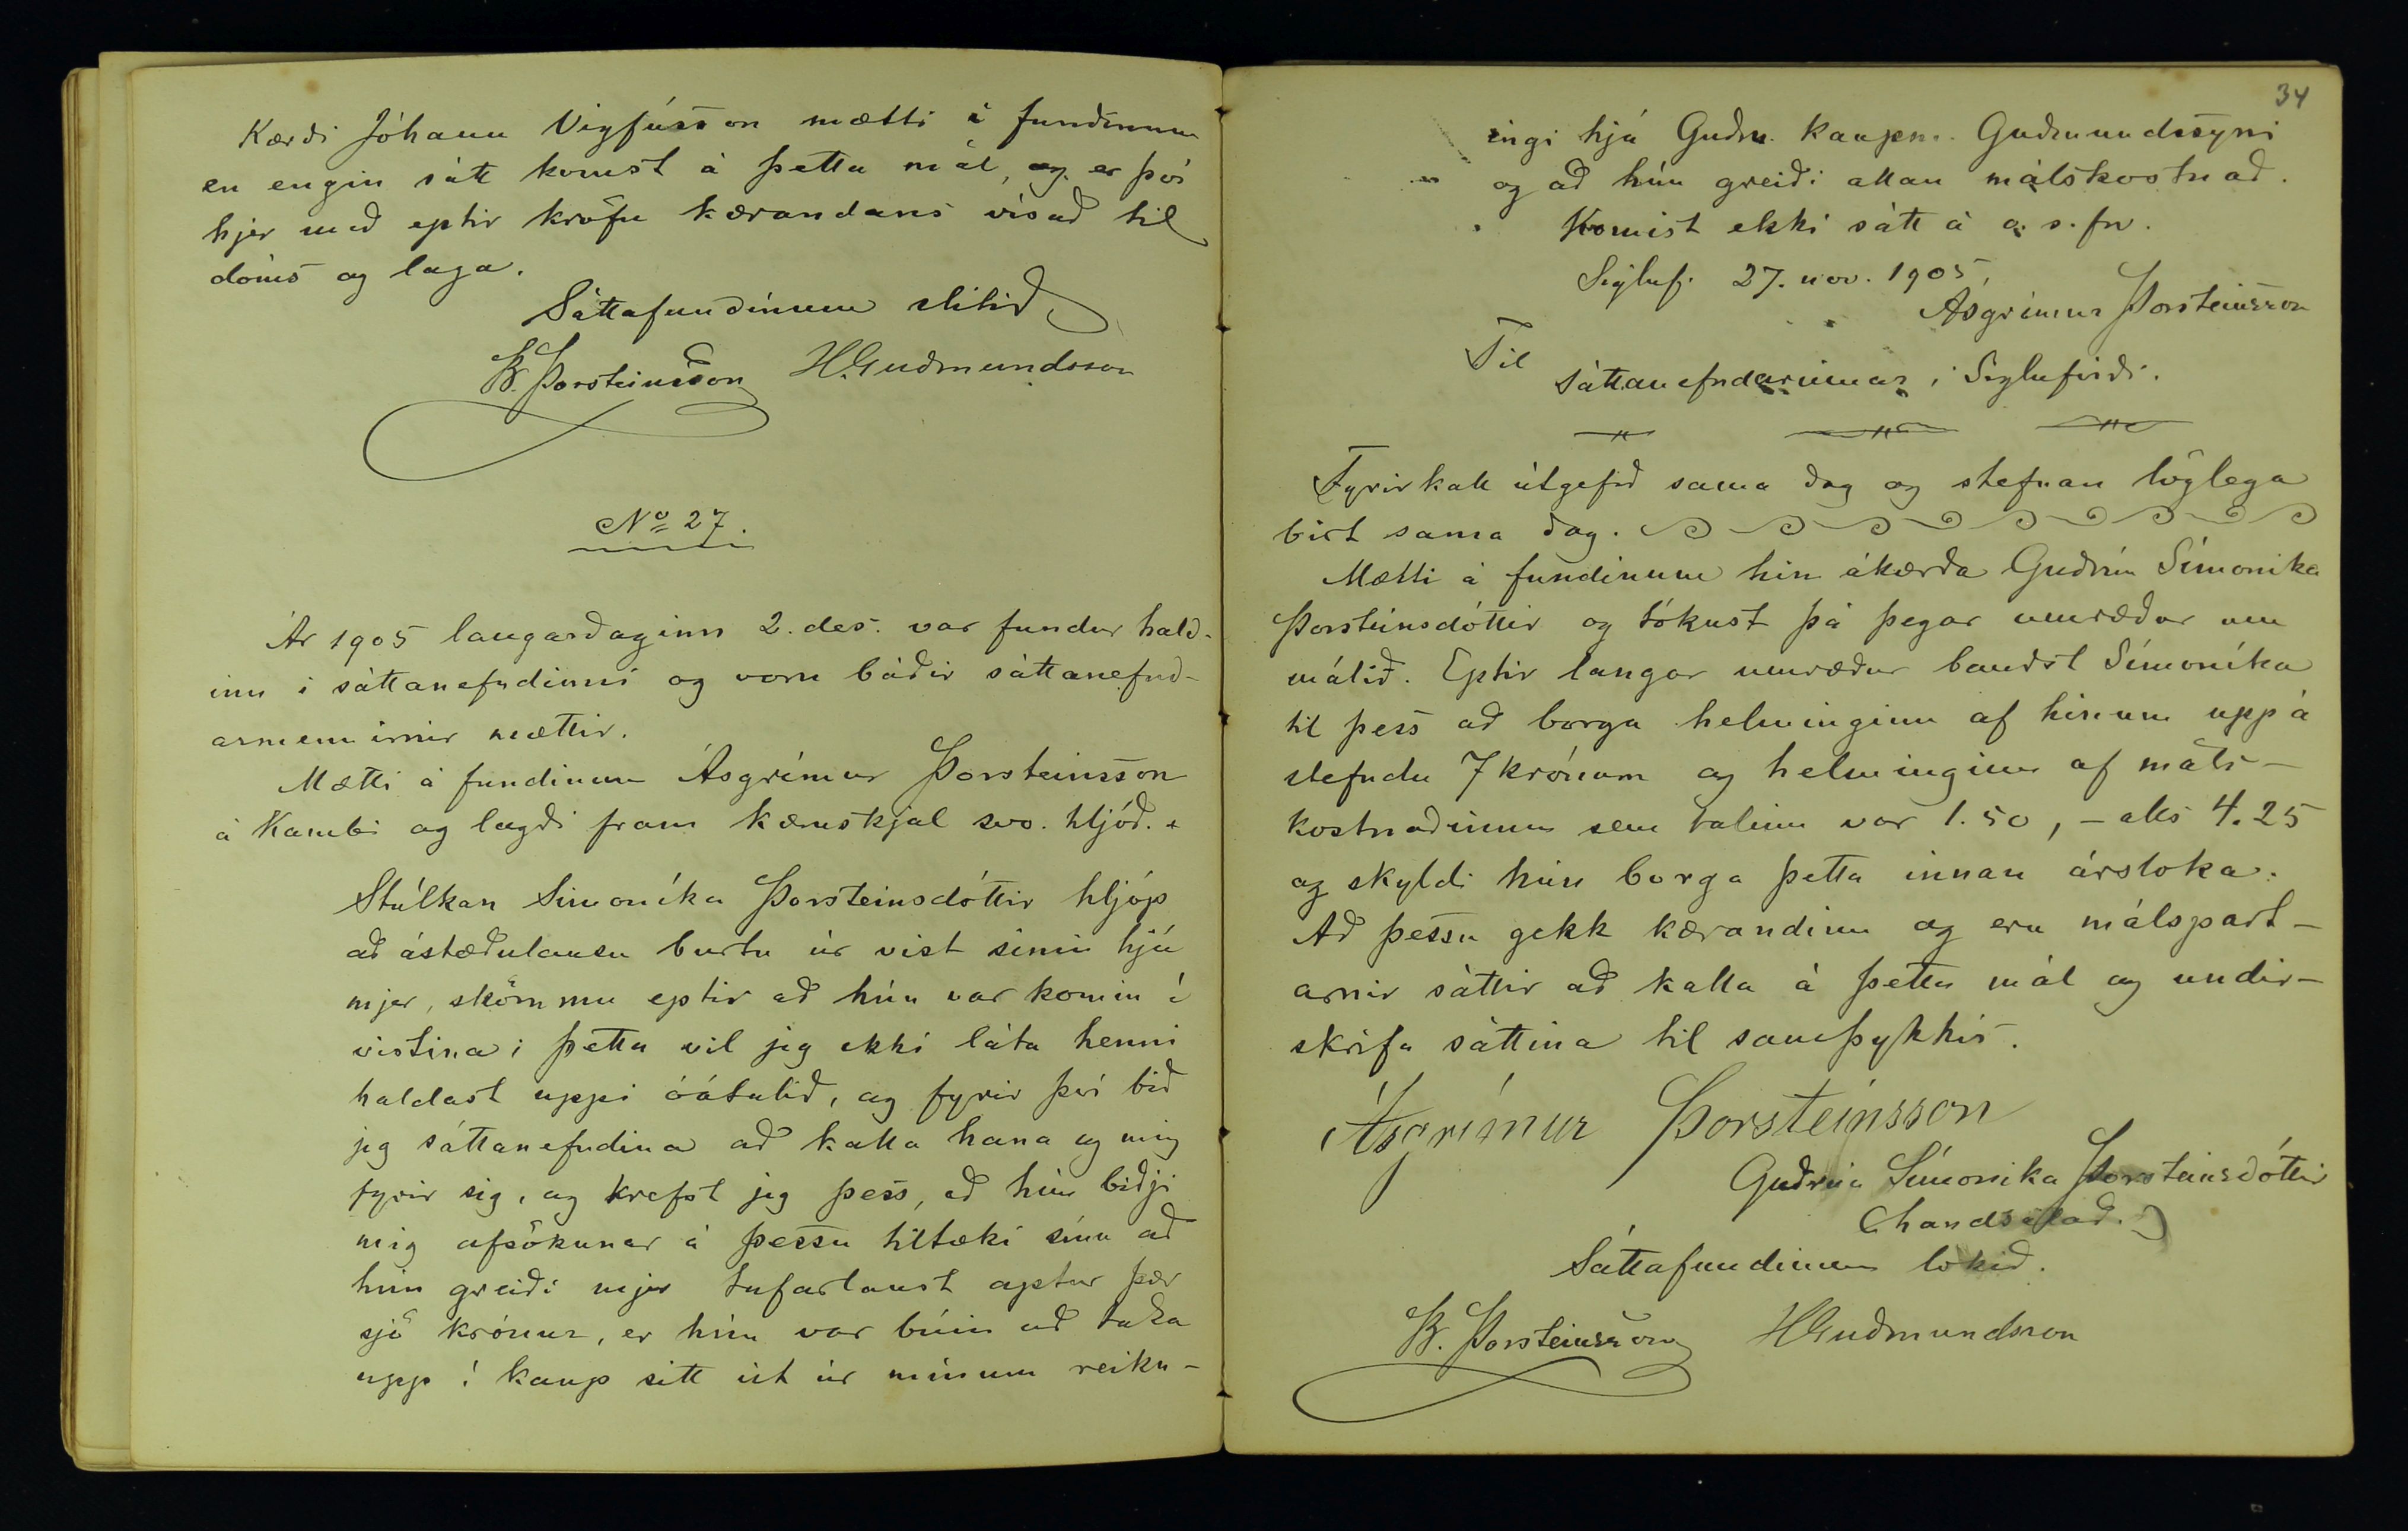 Kærði Jóhann Vigfússon mætti á fundinum
en engin sátt komst á þetta mál, og er því
hjer með eptir kröfu kærandans vísað til
dóms og laga.
Sáttafundinum slitið
B. Þorsteinsson H. Guðmundsson
No 27.
Ár 1905 laugardaginn 2. des. var fundur hald-
inn í sáttanefndinni og voru báðir sáttanefnd-
armennirnir mættir.
Mætti á fundinum Ásgrímur Þorsteinsson
á Kambi og lagði fram kæruskjal svo. hljóð.
Stúlkan Simoníka Þorsteinsdóttir hljóp
að ástæðulausu burtu úr vist sinni hjá
mjer, skömmu eptir að hún var komin í
vistina; þetta vil jeg ekki láta henni
haldast uppi óátalið, og fyrir því bið
jeg sáttanefndina að kalla hana og mig
fyrir sig, og krefst jeg þess, að hún biðji
mig afsökunar á þessu tiltæki sínu að
hún greiði mjer tafarlaust aptur þær
sjö krónur, er hún var búin að taka
upp í kaup sitt út úr mínum reikn-
34
ingi hjá Guðm. kaupm. Guðmundssyni
og að hún greiði allan málskostnað.
Komist ekki sátt á o. s. frv.
Sigluf. 27. nov. 1905.
Ásgrímur Þorsteinsson
Til
sáttanefndarinnar í Siglufirði.
Fyrirkall útgefið sama dag og stefnan löglega
birt sama dag.
Mætti á fundinum hin ákærða Guðrún Símonika
Þorsteinsdóttir og tókust þá þegar umræður um
málið. Eptir langar umræður bauðst Símoníka
til þess að borga helminginn af hinum uppá
stefndu 7 krónum og helminginn af máls-
kostnaðinum sem talinn var 1.50, - alls 4.25
og skyldi hún borga þetta innan ársloka.
Að þessu gekk kærandinn og eru málspart-
arnir sáttir að kalla á þetta mál og undir-
skrifa sáttina til samþykkis.
Ásgrímur Þorsteinsson
Guðrún Símonika Þorsteinsdóttir
(handsalað.)
Sáttafundinum lokið.
B. Þorsteinsson HGuðmundsson